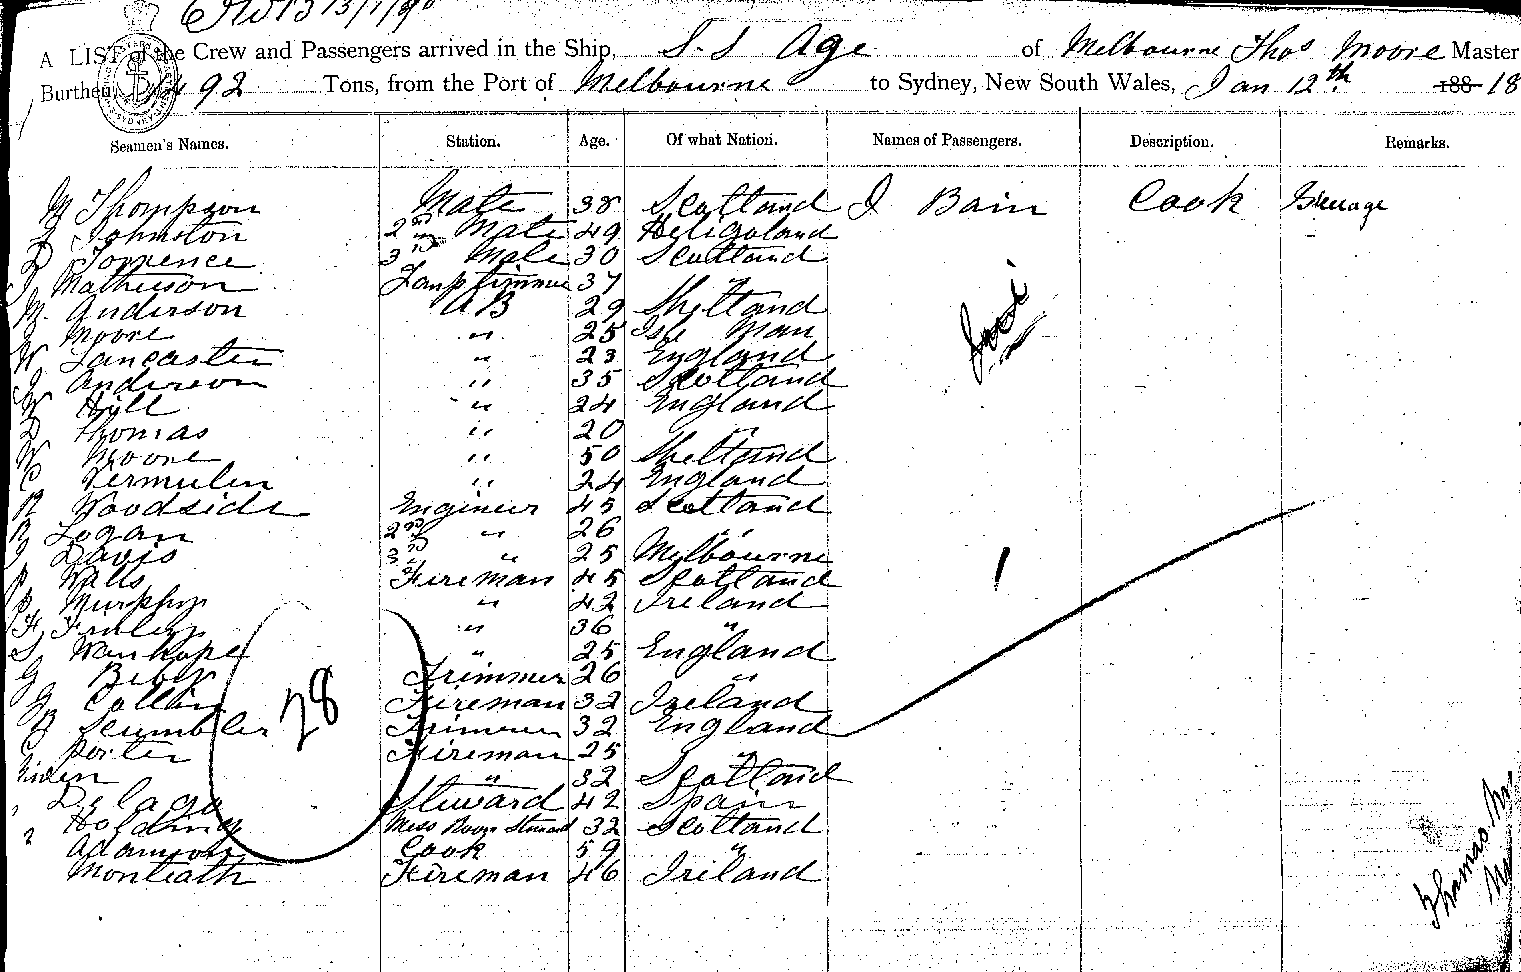 A LIST of the Crew and Passengers arrived in the Ship, S.S Age of Melbourne Thos Moore Master
Burthen 92 Tons, from the Port of Melbourne to Sydney, New South Wales, Jan 12th 188 18
Seamen's Names. Station. Age. Of what Nation. Names of Passengers. Description. Remarks.
M Thompson Mate 38 Scotland J Bain Cook Steerage
J Johnston 2nd Mate 49 Heligoland
D Torrence 3rd Mate 30 Scotland
J Matheson Lamp Trimmer 37
M. Anderson A B 29 Shetland
J Moore " 25 Isle Man
W Lancaster " 23 England
J Anderson " 35 Scotland
W Hill " 24 England
D Thomas " 20 "
W Moore " 50 Shetland
C Vermulen " 24 England
R Woodside Engineer 45 Scotland
R Logan 2nd " 26 "
J Davis 3rd " 25 Melbourne
P Wills Fireman 45 Scotland
P Murphy " 42 Ireland
H Finlay " 36 "
S Wankope " 25 England
G Trimmer 26 "
J Collin Fireman 32 Ireland
B Scumbler Trimmer 32 England
C Porter Fireman 25 "
" 32 Scotland
Delago Steward 42 Spain
Holding Mess Room Steward 32 Scotland
Adamson Cook 59 "
Monteath Fireman 46 Ireland
28
Thomas